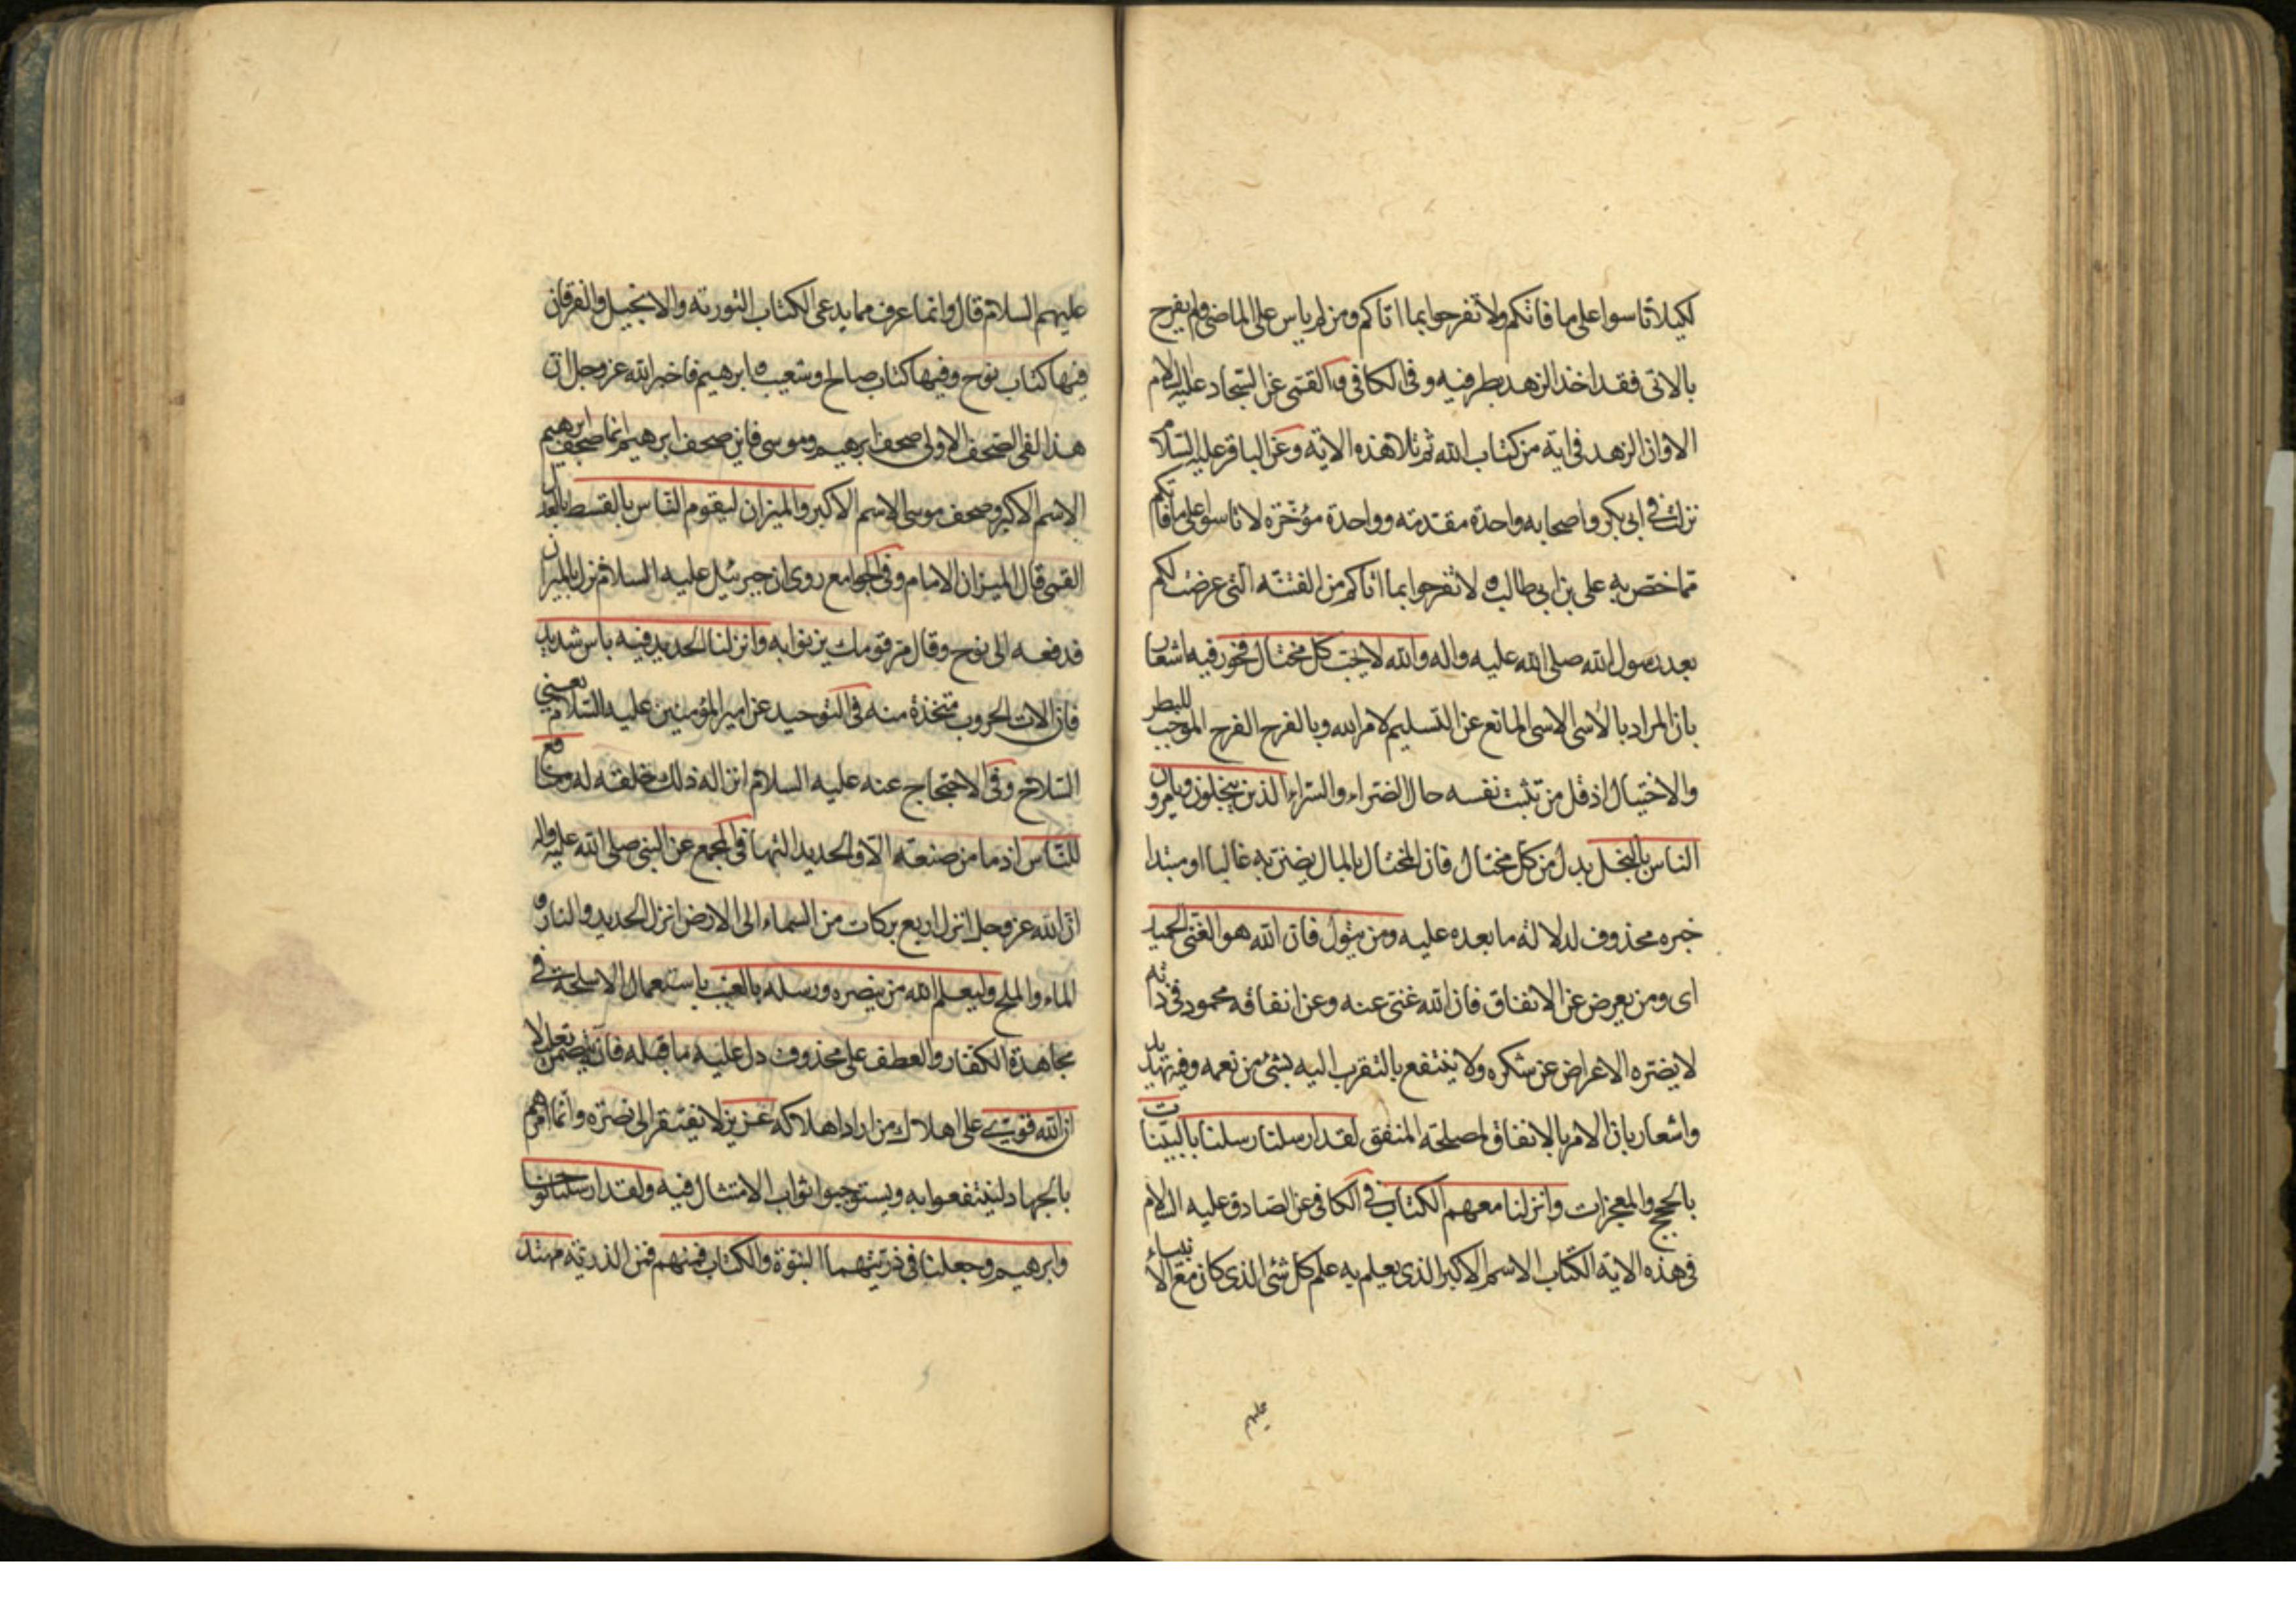 لكيلا تاسوا على ما فاتكم ولا تفرحوا بما اتاكم ومن لم ياس على الماضى ولم يفرح
بالاتى فقد اخذ الزهد بطرفيه وفى الكافى والقمى عن السجاد عليه السلام
الا وان الزهد فى اية من كتاب الله ثم تلا هذه الاية وعن الباقر عليه السلام
نزلت فى ابى بكر واصحابه واحدة مقدمة وواحدة مؤخرة لا تاسوا على ما فاتكم
مما خص به على بن ابى طالب ولا تفرحوا بما اتاكم من الفتنة التى عرضت لكم
بعد رسول الله صلى الله عليه واله والله لا يحب كل مختال فخور فيه اشعار
بان المراد بالاسى الاسى المانع عن التسليم لامر الله وبالفرح الفرح الموجب للبطر
والاختيال اذ قل من تثبت نفسه حال الضراء والسراء الذين يبخلون ويامرون
الناس بالبخل بدل من كل مختال فان المختال بالمال يضن به غالبا او مبتدا
خبره محذوف لدلالة ما بعده عليه ومن يتول فان الله هو الغنى الحميد
اى ومن يعرض عن الانفاق فان الله غنى عنه وعن انفاقه محمود فى ذاته
لا يضره الاعراض عن شكره ولا ينتفع بالتقرب اليه بشئ من نعمه وفيه تهديد
واشعار بان الامر بالانفاق لمصلحة المنفق لقد ارسلنا رسلنا بالبينات
بالحجج والمعجزات وانزلنا معهم الكتاب فى الكافى عن الصادق عليه السلام
فى هذه الاية الكتاب الاسم الاكبر الذى يعلم به علم كل شئ الذى كان مع الانبياء
عليهم
عليهم السلام قال وانما عرف مما يدعى الكتاب التورية والانجيل والفرقان
فيها كتاب نوح وفيها كتاب صالح وشعيب وابرهيم فاخبر الله عز وجل ان
هذا لفى الصحف الاولى صحف ابرهيم وموسى فاين صحف ابرهيم انما صحف ابرهيم
الاسم الاكبر وصحف موسى الاسم الاكبر والميزان ليقوم الناس بالقسط بالعدل
القمى قال الميزان الامام وفى الجوامع روى ان جبرئيل عليه السلام نزل بالميزان
فدفعه الى نوح وقال مر قومك يزنوا به وانزلنا الحديد فيه باس شديد
فان الات الحروب متخذة منه فى التوحيد عن امير المؤمنين عليه السلام يعنى
السلاح وفى الاحتجاج عنه عليه السلام انزاله ذلك خلقه له ومنافع
للناس اذ ما من صنعة الا والحديد التها فى المجمع عن النبى صلى الله عليه واله
ان الله عز وجل انزل اربع بركات من السماء الى الارض انزل الحديد والنار و
الماء والملح وليعلم الله من ينصره ورسله بالغيب باستعمال الاسلحة فى
مجاهدة الكفار والعطف على محذوف دل عليه ما قبله فانه يتضمن تعليلا
ان الله قوى على اهلاك من اراد اهلاكه عزيز لا يفتقر الى نصره وانما امرهم
بالجهاد لينتفعوا به ويستوجبوا ثواب الامتثال فيه ولقد ارسلنا نوحا
وابرهيم وجعلنا فى ذريتهما النبوة والكتاب فمنهم فمن الذرية مهتد